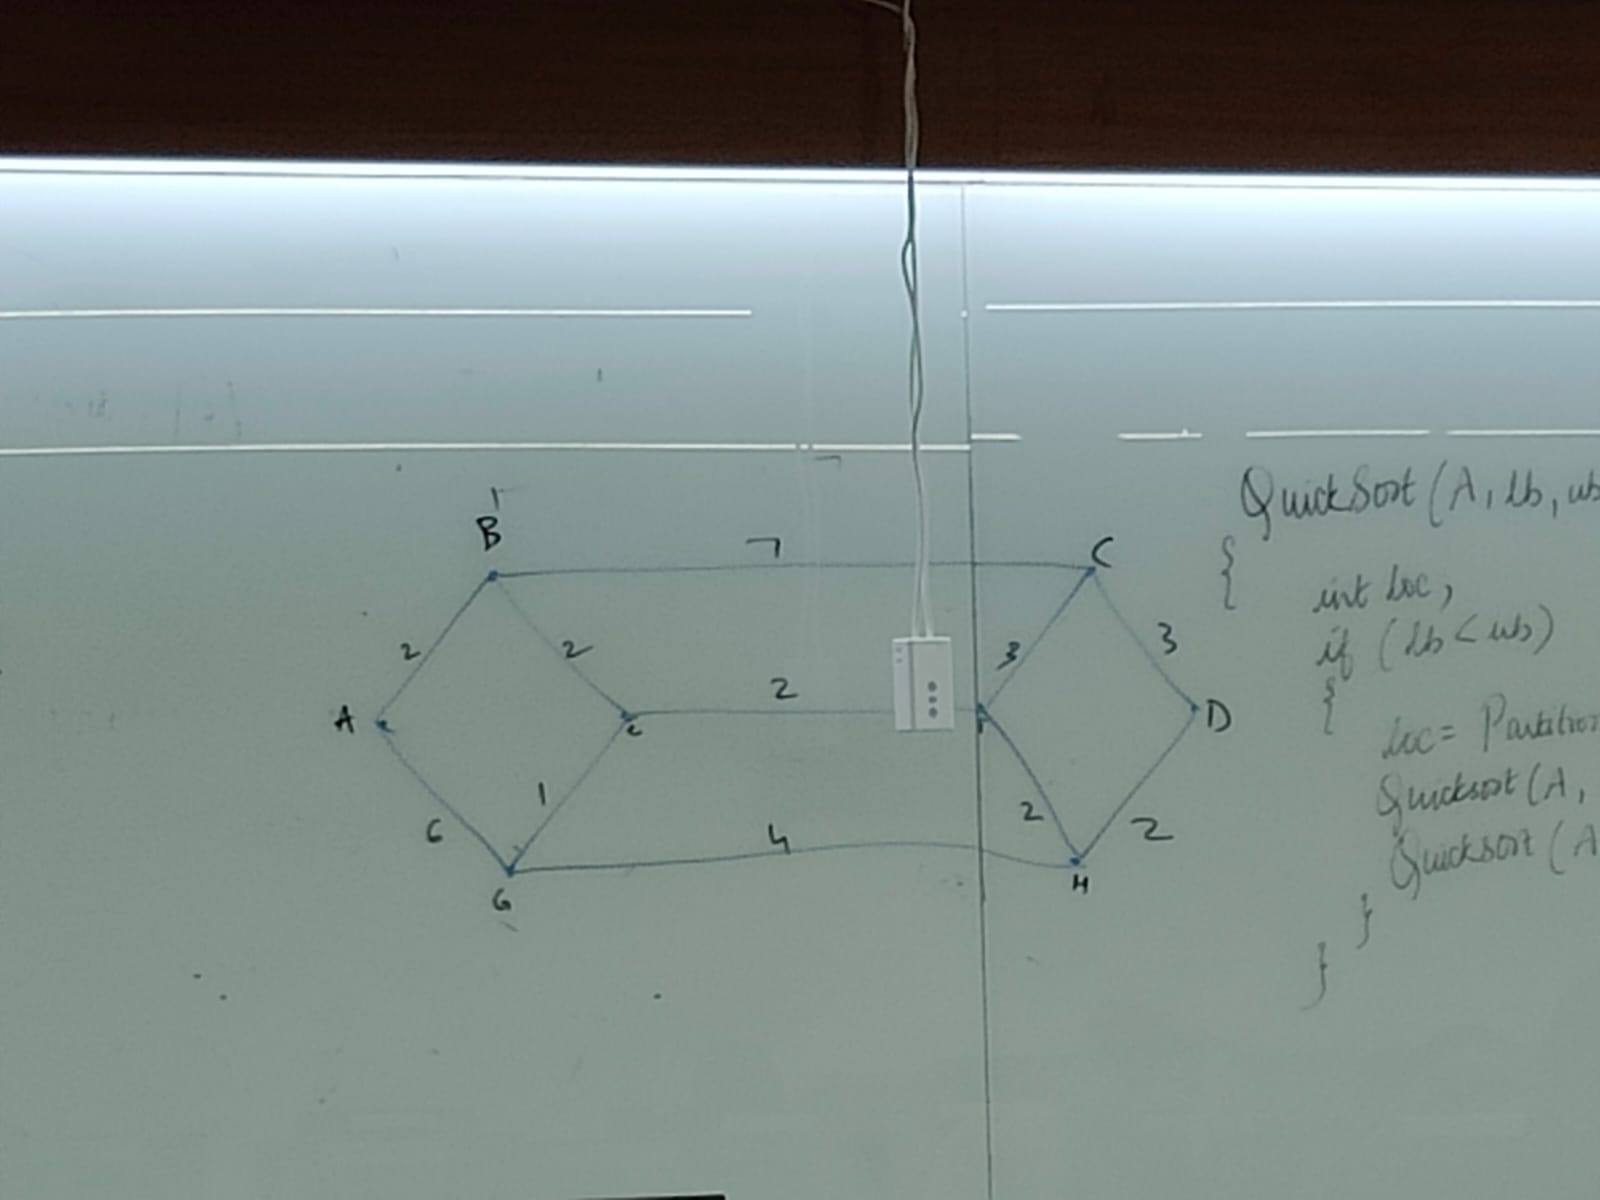 B
7
C
2
2
3
3
A
2
e
F
D
6
1
2
2
4
G
H
QuickSort (A, lb, ub
{
int loc,
if (lb < ub)
{
loc = Partition
Quicksort (A,
Quicksort (A
}
}